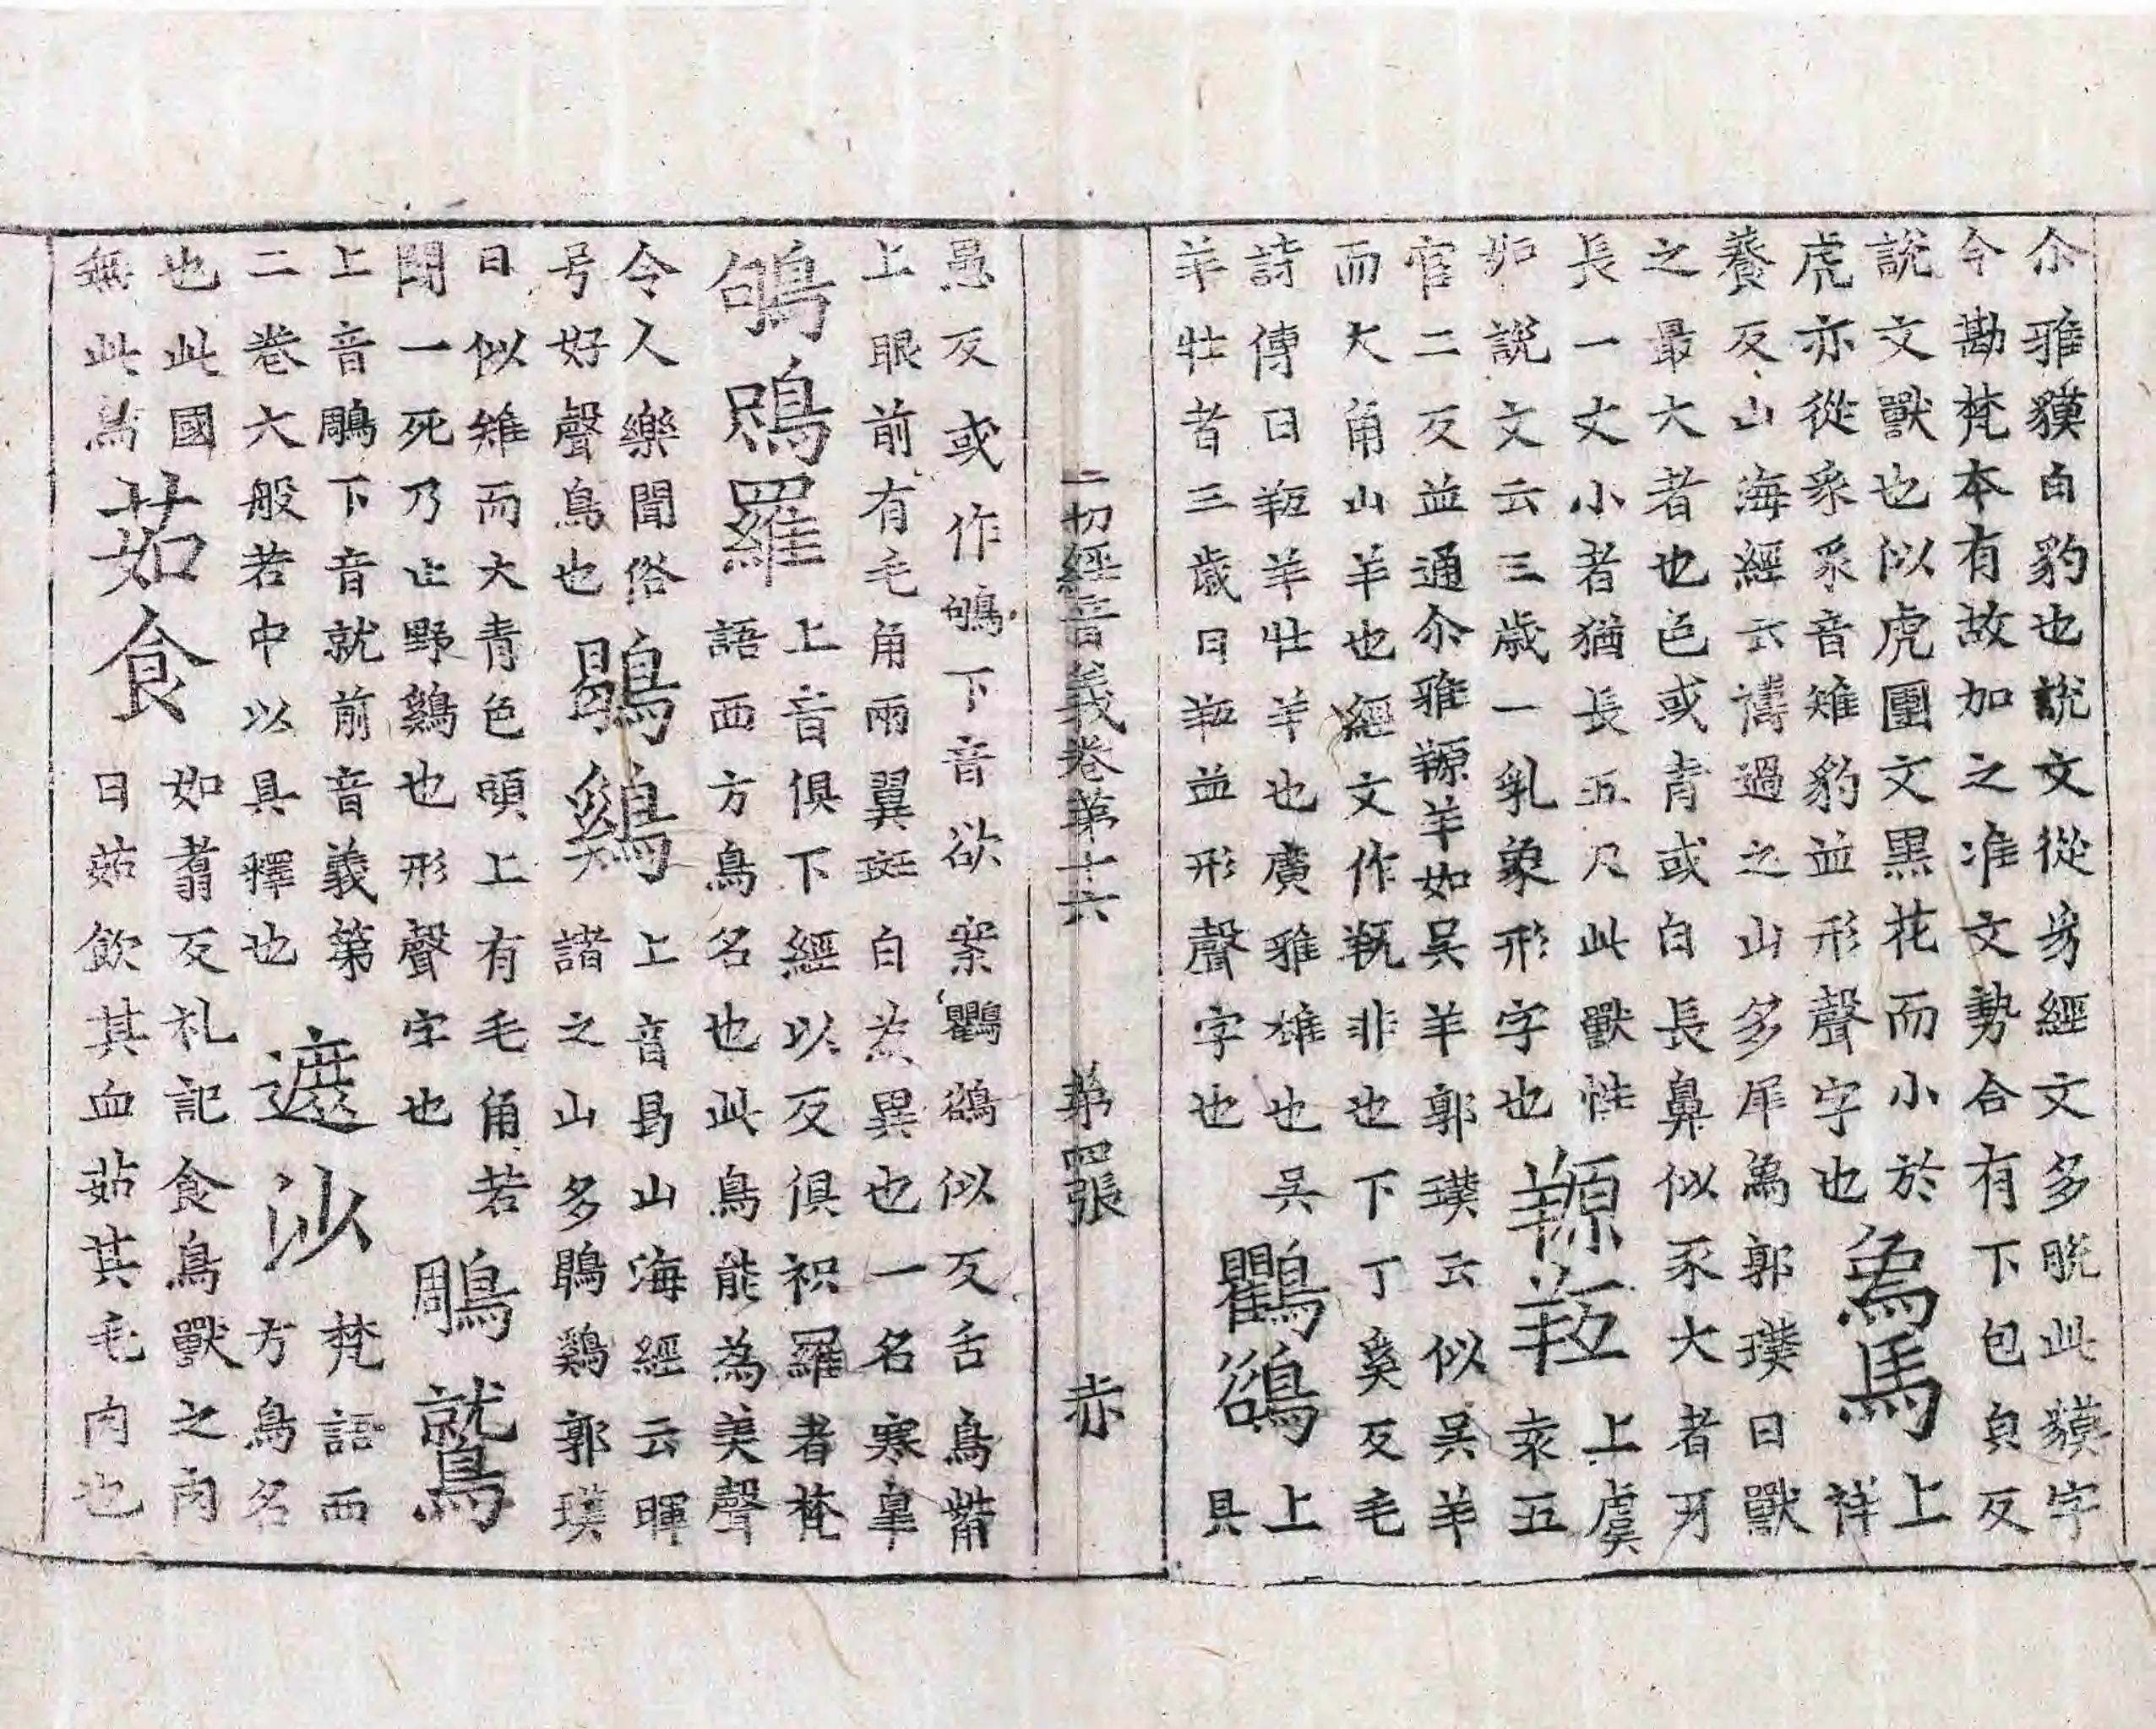 尒雅貘白豹也說文從豸經文多脫此貘字
今勘梵本有故加之准文勢合有下包皃反
說文獸也似虎圜文黒花而小於
虎亦從豸豸音雉豹並形聲字也
為馬
上
祥
養反山海經云禱過之山多犀為郭璞曰獸
之最大者也色或青或白長鼻似豕大者牙
長一丈小者猶長五尺此獸性
如說文云三歳一乳象形字也
羱羝
上虞
袁五
官二反並通尒雅羱羊如吳羊郭璞云似吳羊
而大角山羊也經文作羝非也下丁奚反毛
詩傳曰羝羊牡羊也廣雅雄也吳
羊牡者三歳曰羝並形聲字也
鸜鵒
上
具
一切經音義卷第十六 第四張 赤
愚反或作鴝下音欲案鸜鵒似反舌鳥觜
上眼前有毛角兩翼斑白為異也一名寒皐
鴝鷃羅
上音俱下經以反俱枳羅者梵
語西方鳥名也此鳥能為美聲
令人樂聞俗
号好聲鳥也
鶡鷄
上音曷山海經云暉
諸之山多鶡鷄郭璞
曰似雉而大青色頭上有毛角若
鬪一死乃止野鷄也形聲字也
鵰鷲
上音鵰下音就前音義第
二卷大般若中以具釋也
遮沙
梵語西
方鳥名
也此國
無此鳥
茹食
如翥反礼記食鳥獸之肉
曰茹飲其血茹其毛肉也